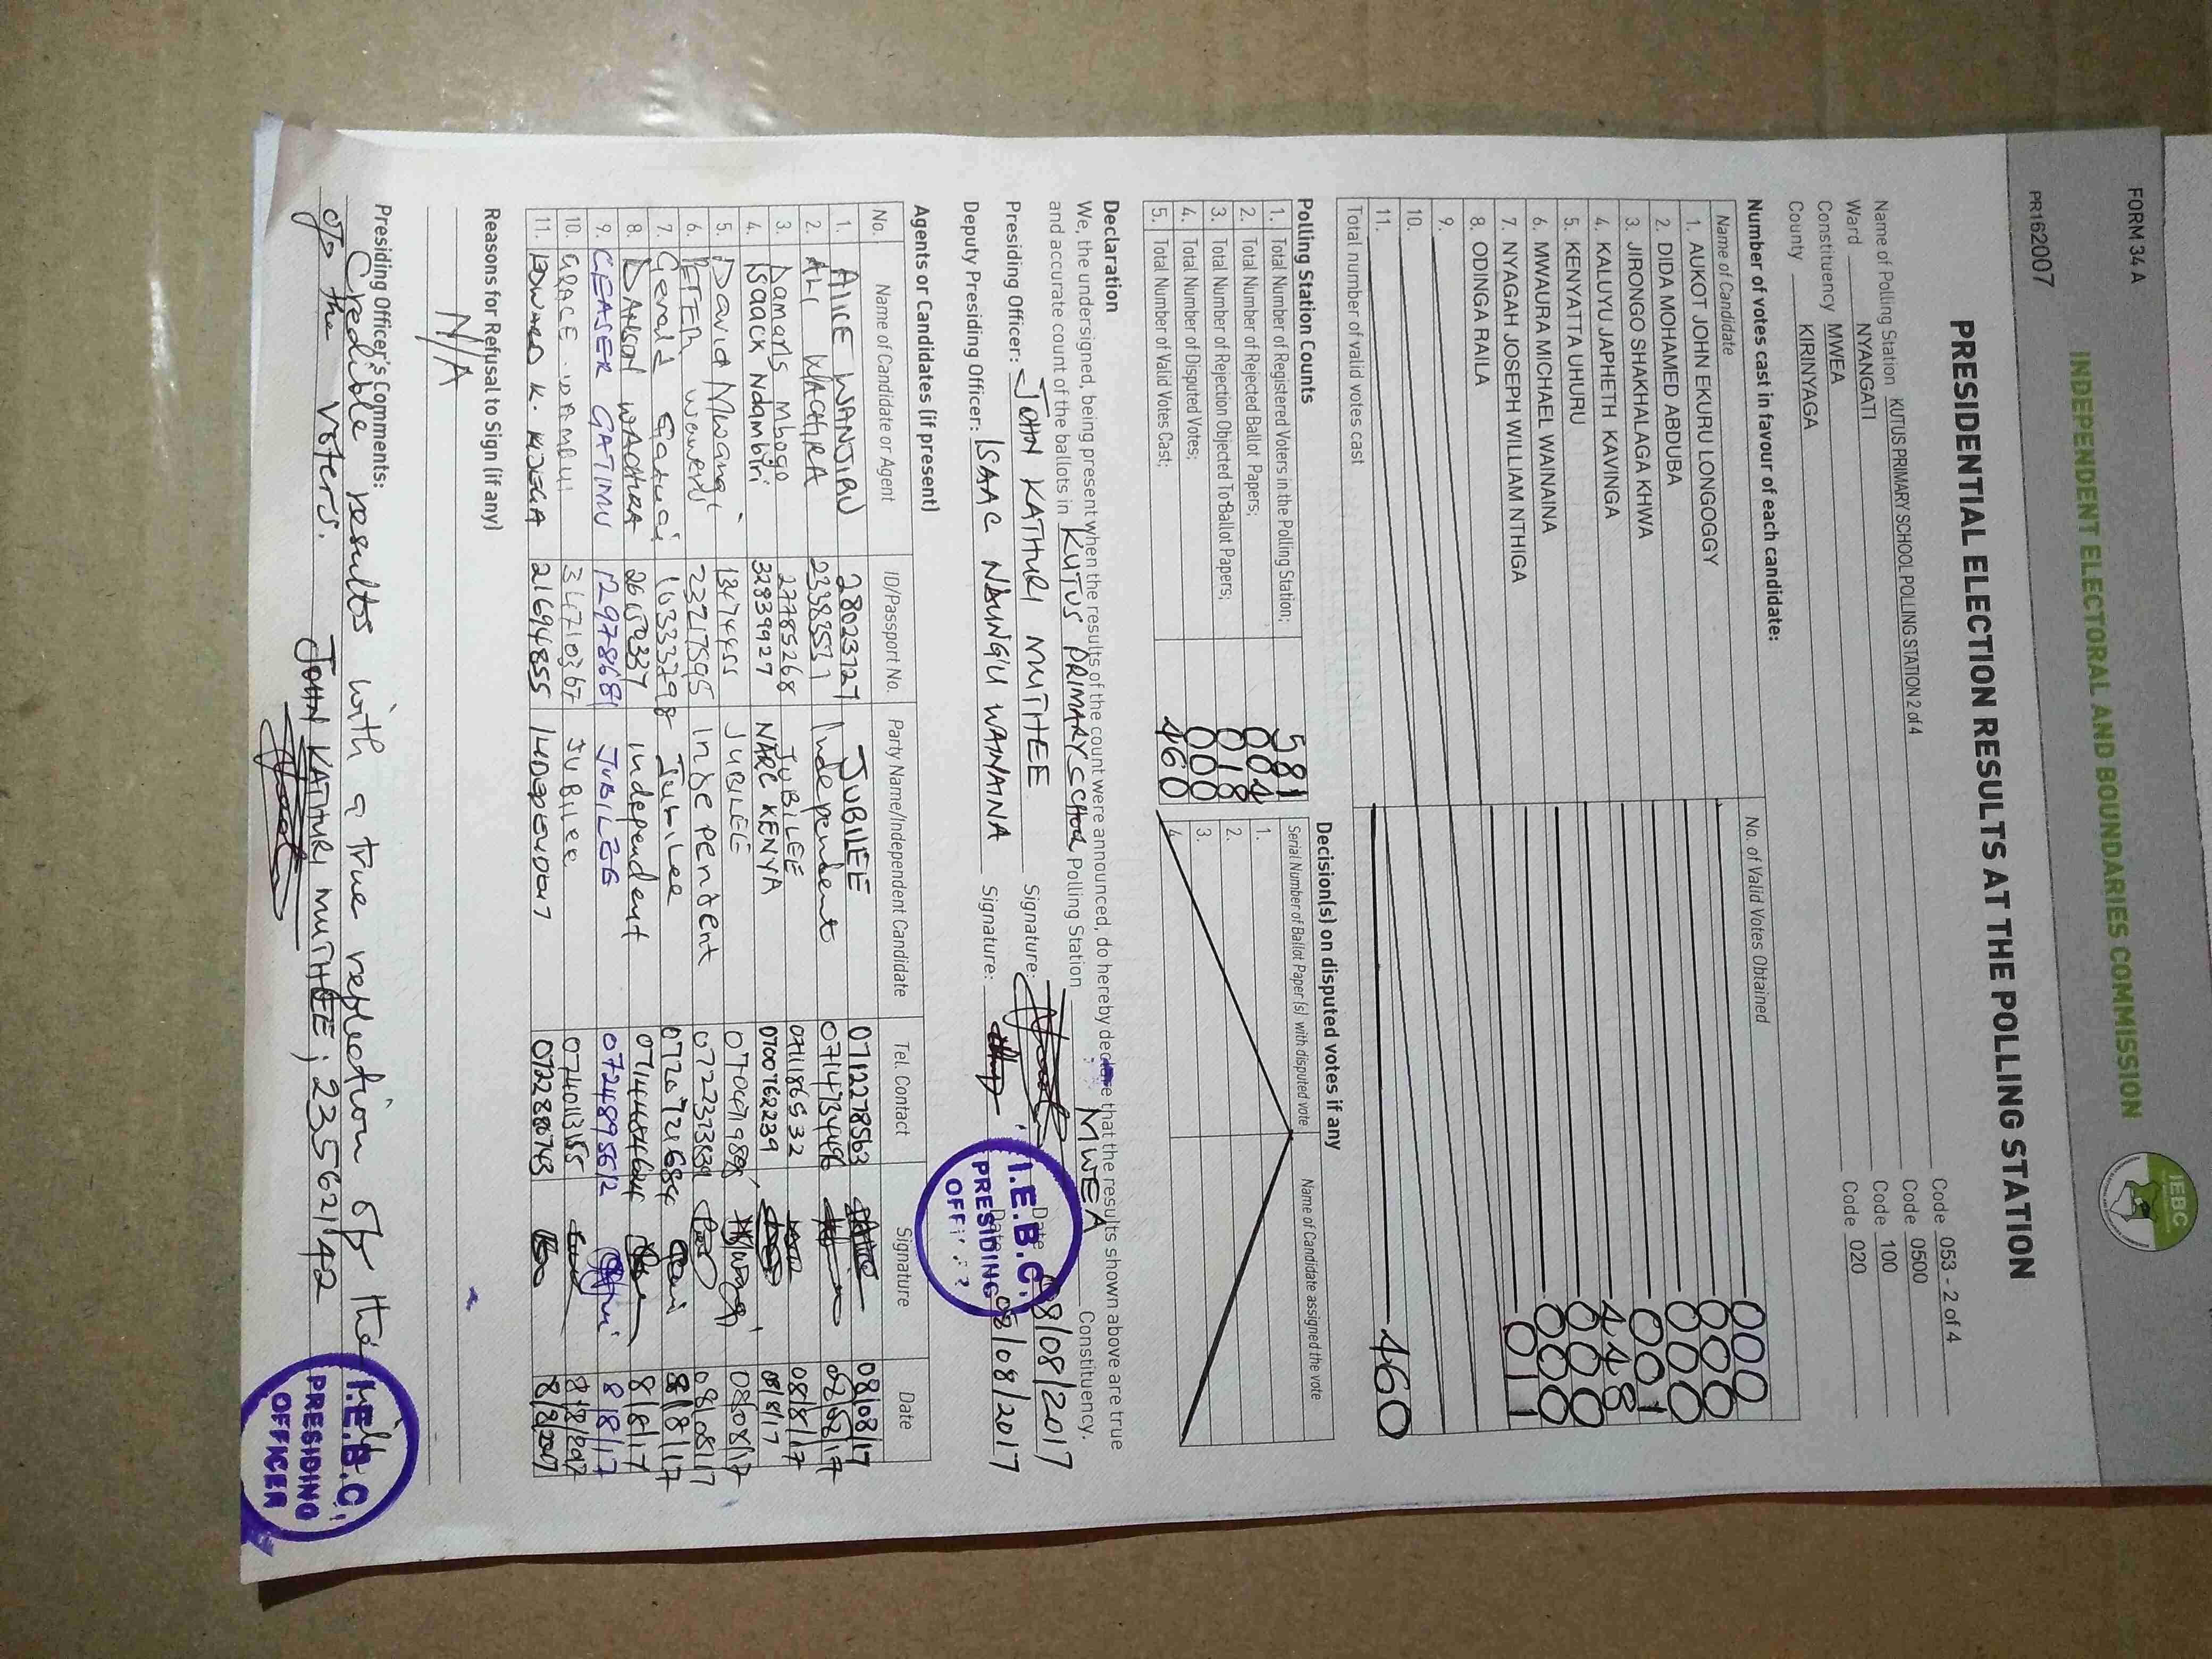 FORM 34 A
INDEPENDENT ELECTORAL AND BOUNDARIES COMMISSION
IEBC
PR162007
PRESIDENTIAL ELECTION RESULTS AT THE POLLING STATION
Name of Polling Station KUTUS PRIMARY SCHOOL POLLING STATION 2 of 4 Code 053 - 2 of 4
Ward NYANGATI Code 0500
Constituency MWEA Code 100
County KIRINYAGA Code 020
Number of votes cast in favour of each candidate:
Name of Candidate No. of Valid Votes Obtained
1. AUKOT JOHN EKURU LONGOGGY 000
2. DIDA MOHAMED ABDUBA 000
3. JIRONGO SHAKHALAGA KHWA 000
4. KALUYU JAPHETH KAVINGA 001
5. KENYATTA UHURU 448
6. MWAURA MICHAEL WAINAINA 000
7. NYAGAH JOSEPH WILLIAM NTHIGA 000
8. ODINGA RAILA 011
9.
10.
11.
Total number of valid votes cast 460
Polling Station Counts
1. Total Number of Registered Voters in the Polling Station; 581
2. Total Number of Rejected Ballot Papers; 004
3. Total Number of Rejection Objected To Ballot Papers; 018
4. Total Number of Disputed Votes; 000
5. Total Number of Valid Votes Cast; 460
Decision(s) on disputed votes if any
Serial Number of Ballot Paper (s) with disputed vote Name of Candidate assigned the vote
1.
2.
3.
4.
Declaration
We, the undersigned, being present when the results of the count were announced, do hereby declare that the results shown above are true
and accurate count of the ballots in KUTUS PRIMARY SCHOOL Polling Station MWEA Constituency.
Presiding Officer: JOHN KATHURI MUTHEE Signature: Date 08/08/2017
Deputy Presiding Officer: ISAAC NAUNGU WAINAINA Signature: Date 08/08/2017
I.E.B.C.
PRESIDING
Agents or Candidates (if present)
No. Name of Candidate or Agent ID/Passport No. Party Name/Independent Candidate Tel. Contact Signature Date
1. ALICE WANJIRU 28023727 JUBILEE 0712278563 08/08/17
2. ALI WACHIRA Independent 0714734496 08/08/17
3. Damaris Mbogo 27785268 JUBILEE 0711186532 08/8/17
4. ISAACK Ndambiri 32839927 NARC KENYA 0700762239 08/8/17
5. David Mwangi 13474455 JUBILEE 08/08/17
6. PETER 23217595 Independent 08/08/17
7. Gerald 10333298 Jubilee 0720721684 8/8/17
8. DAHSON WACHIRA Independent 8/8/17
9. CEASER GATIMU 12978681 JUBILEE 8/8/17
10. GRACE WAMBUI JUBILEE 0740113155 8/8/2017
11. K. 21694855 INDEPENDENT 8/8/2017
Reasons for Refusal to Sign (if any)
N/A
Presiding Officer's Comments:
Credible results with a true reflection of the
of the voters. JOHN KATHURI MUTHEE; 23562142
I.E.B.C.
PRESIDING
OFFICER